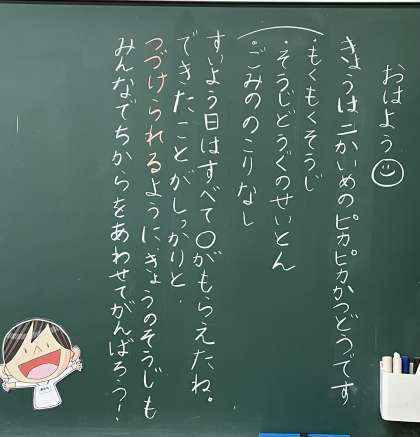 おはよう
きょうは二かいめのピカピカかつどうです
・もくもくそうじ
・そうじどうぐのせいとん
・ごみののこりなし
すいよう日はすべて〇がもらえたね。
できたことがしっかりと、
つづけられるようにきょうのそうじも
みんなでちからをあわせてがんばろう!